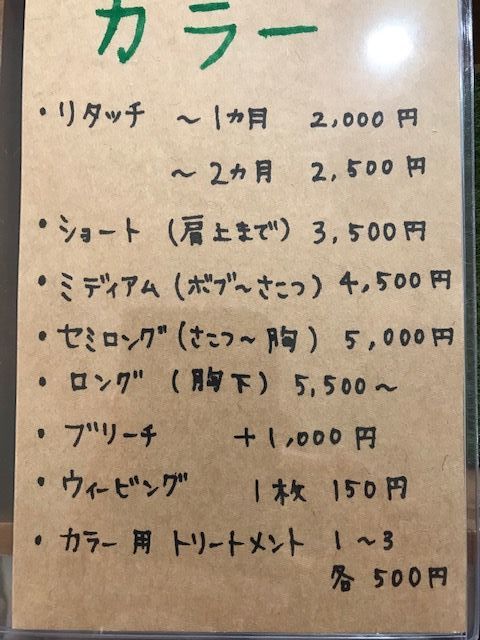 カラー
・リタッチ ～1カ月 2,000円
～2カ月 2,500円
・ショート (肩上まで) 3,500円
・ミディアム (ボブ～さこつ) 4,500円
・セミロング (さこつ～胸) 5,000円
・ロング (胸下) 5,500～
・ブリーチ +1,000円
・ウィービング 1枚 150円
・カラー用 トリートメント 1～3
各 500円